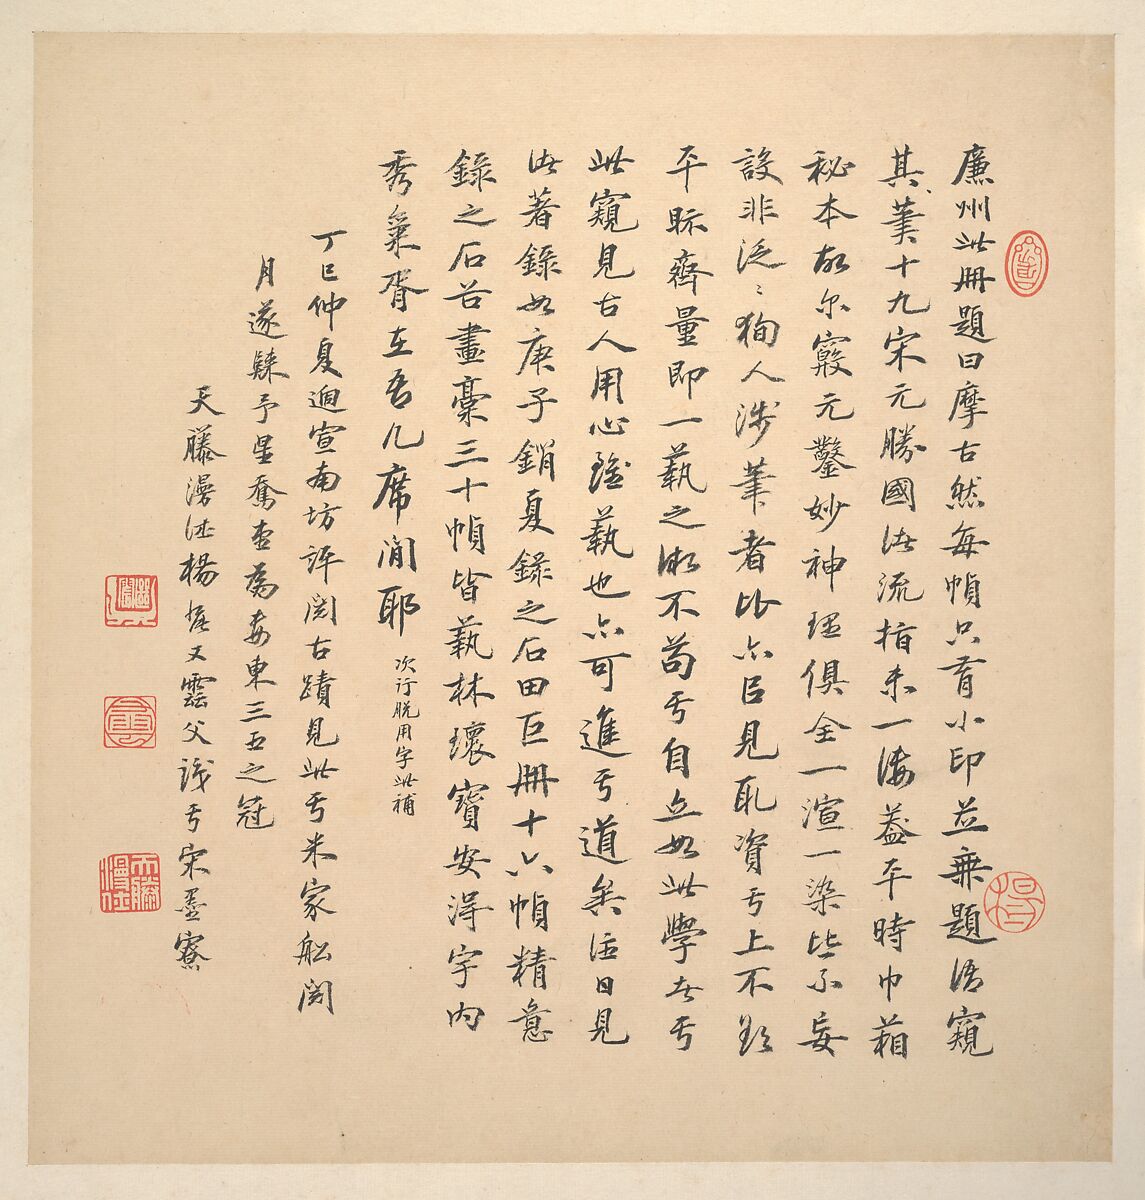 廉州此冊題曰摩古然每幀只有小印並無題語窺
其蒙十九宋元勝國法流指未一漙蓋平時巾箱
秘本故尔窽元鑿妙神理俱全一渲一染皆不妄
設非泛〻狥人涉筆者比亦足見取資亏上不
平眎齊量即一藝之微不苟亏自立如此學者亏
此窺見古人用心雖藝也亦可進亏道矣往日見
法著錄如庚子銷夏錄之石田巨冊十六幀精意
錄之石谷畫藁三十幀皆藝林瓌寶安得宇內
秀氣胥在吾几席間耶
次行脫用字此補
丁巳仲夏過宣南坊評閱古蹟見此亏米家船閱
月遂歸予星奪壺為海東三五之冠
天滕漫仕楊 又雲父識亏宋墨寮